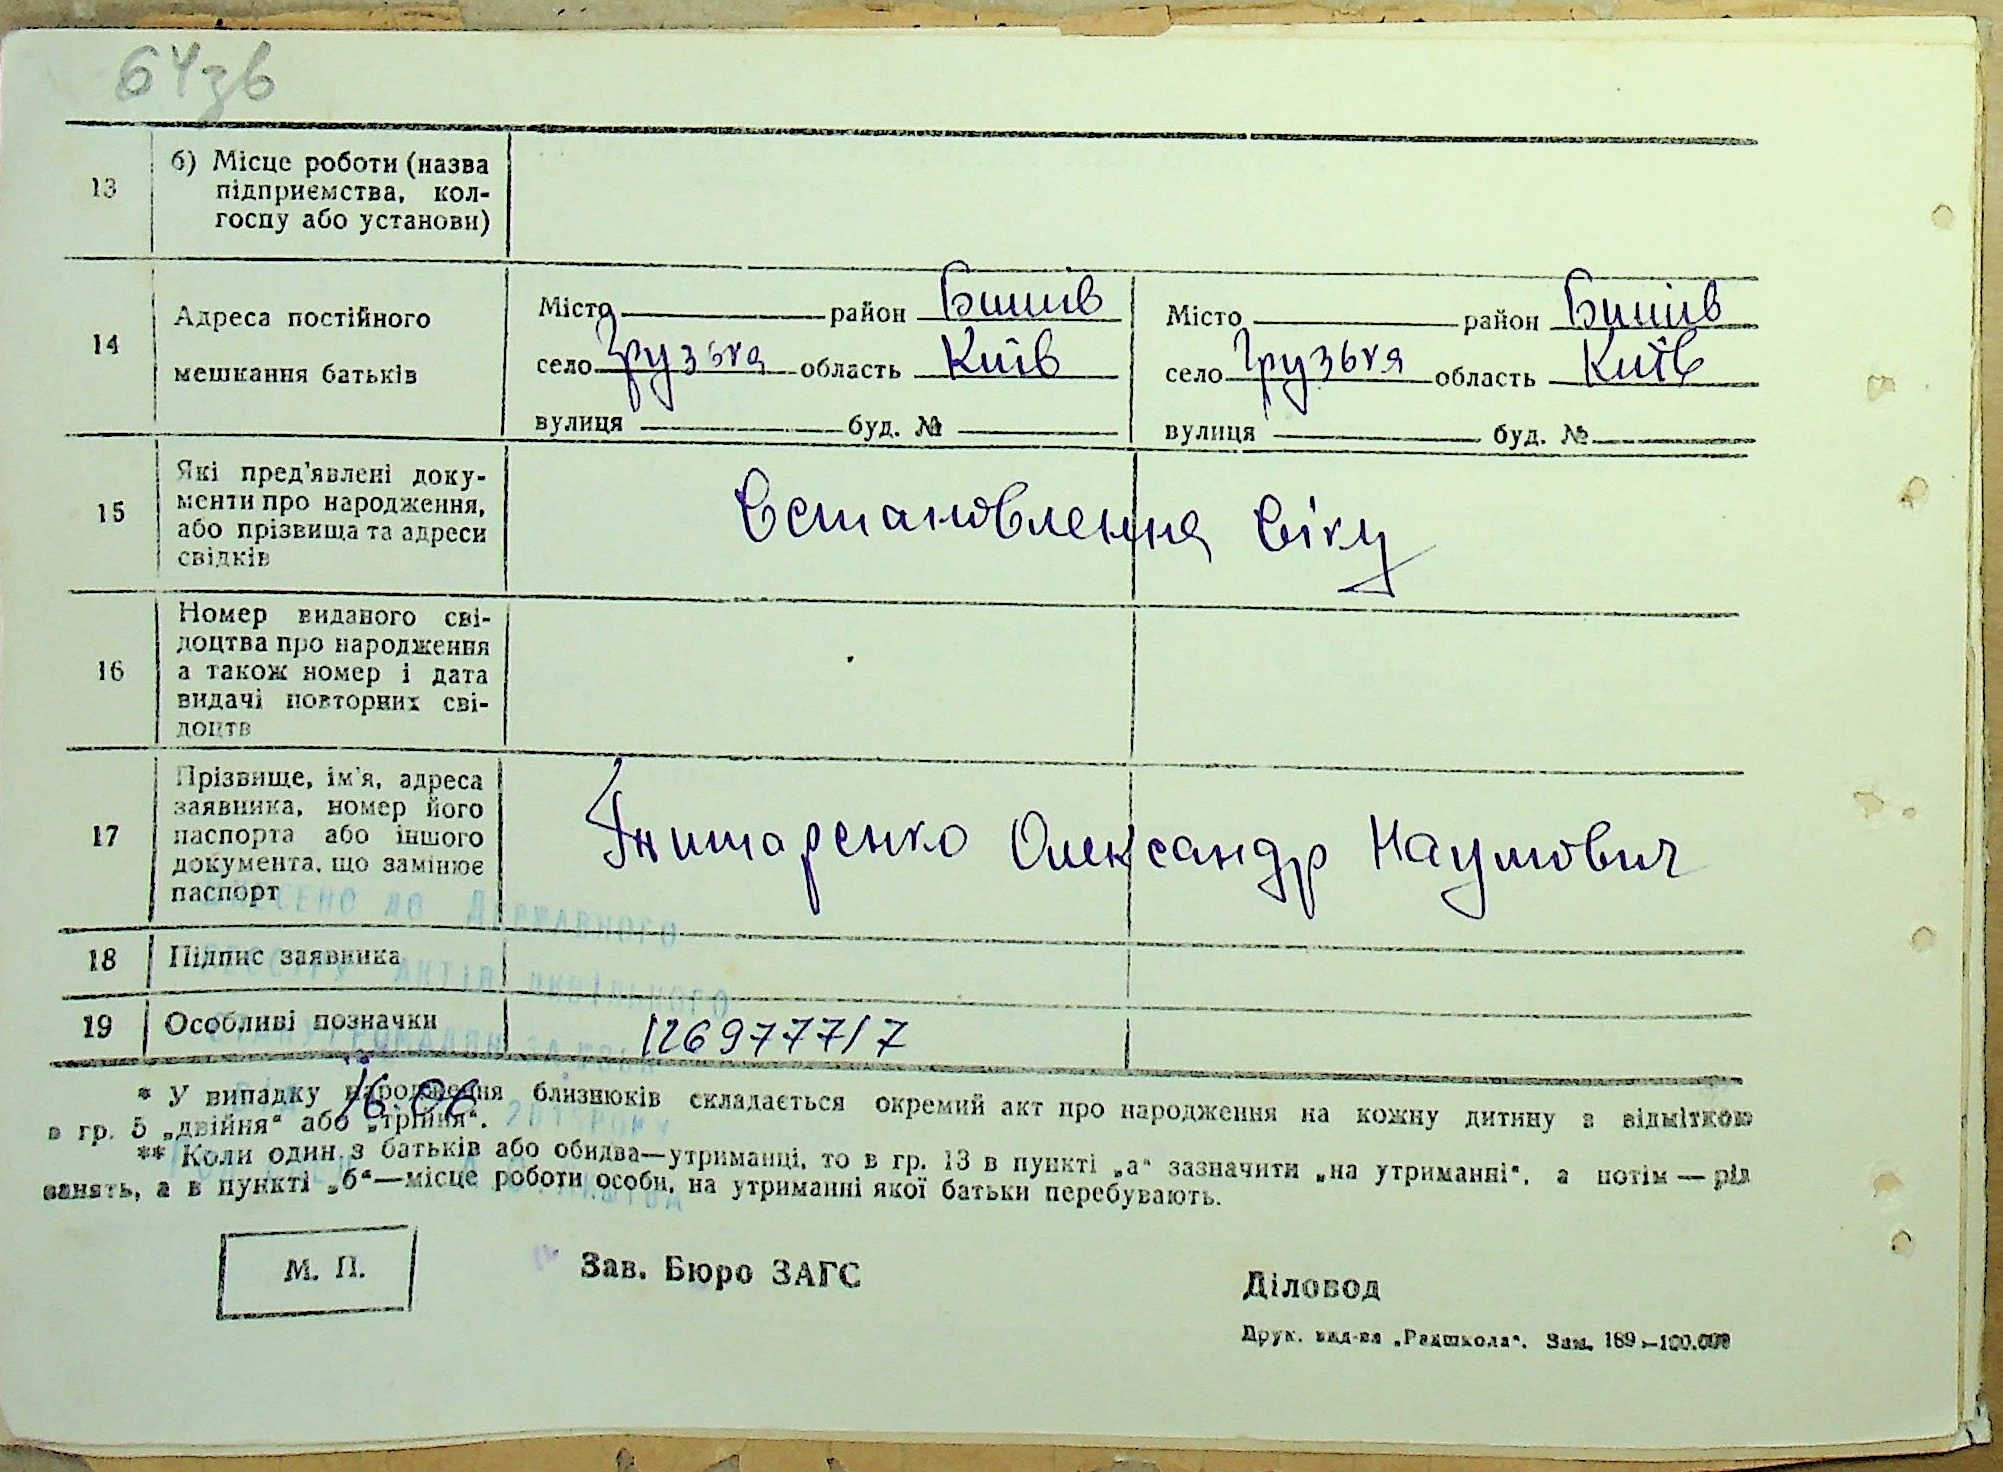 64зв
13 б) Місце роботи (назва
підприємства, кол-
госпу або установи)
14 Адреса постійного
мешкання батьків
Місто район Бишів
село Грузька область Київ
вулиця буд. №
Місто район Бишів
село Грузька область Київ
вулиця буд. №
15 Які пред'явлені доку-
менти про народження,
або прізвища та адреси
свідків
Встановлення віку
16 Номер виданого сві-
доцтва про народження
а також номер і дата
видачі повторних сві-
доцтв
17 Прізвище, ім'я, адреса
заявника, номер його
паспорта або іншого
документа, що замінює
паспорт
Олександр Наумович
ДО ДЕРЖАВНОГО
18 Підпис заявника
АКТІВ ЦИВІЛЬНОГО
19 Особливі позначки 12697771 7
СТАНУ ГРОМАДЯН
16 06
* У випадку народження близнюків складається окремий акт про народження на кожну дитину з відміткою
в гр. 5 „двійня“ або „трійня“.
** Коли один з батьків або обидва—утриманці, то в гр. 13 в пункті „а“ зазначити „на утриманні“, а потім — рід
занять, а в пункті „б“—місце роботи особи, на утриманні якої батьки перебувають.
М. П.
Зав. Бюро ЗАГС
Діловод
Друк. вид-ва „Радшкола“. Зам. 189—100.000